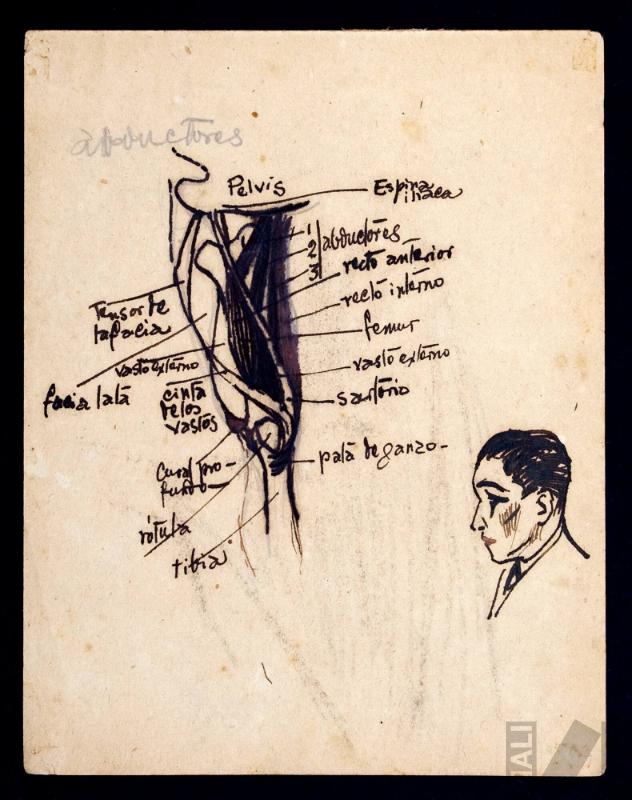 abductores
Pelvis
Espina
iliaca
1
2 abductores
3
recto anterior
recto interno
femur
vasto externo
sartorio
pata de ganzo-
Tensor de
la facia
facia lata
vasto externo
cinta
de los
vastos
Cural pro-
fundo
rótula
tibia
MALI